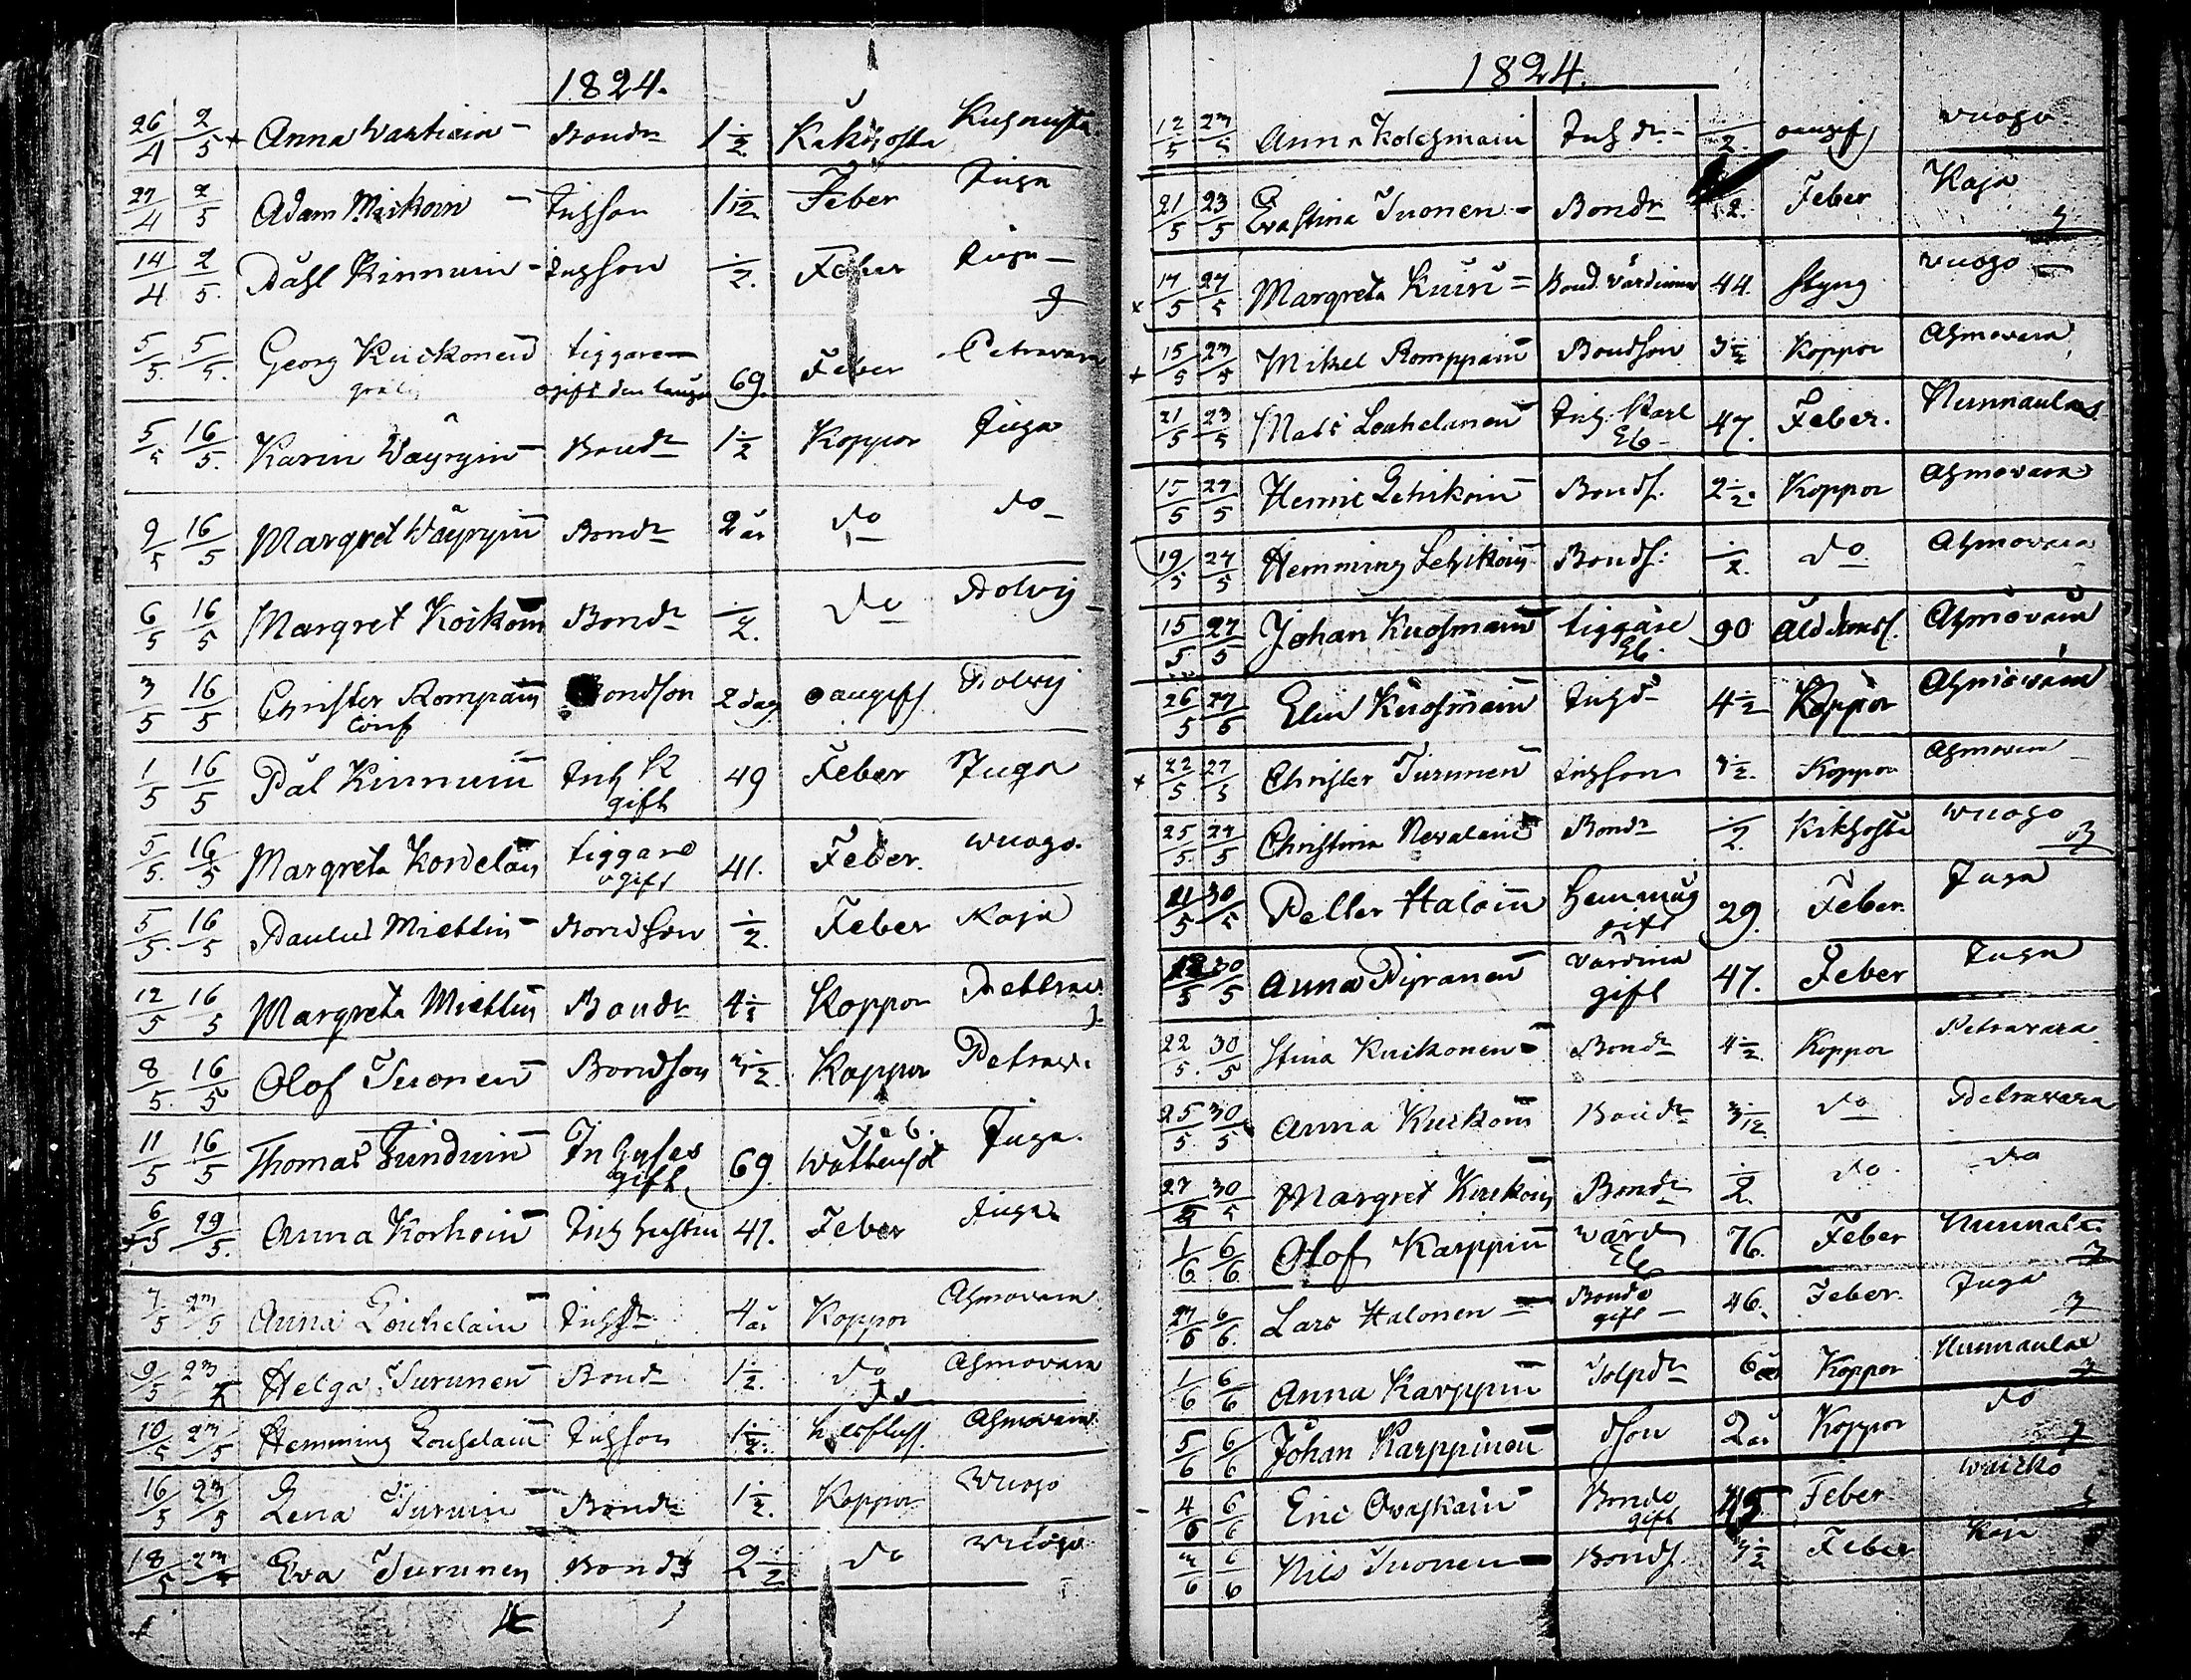 1824.
26/4 2/5 + Anna Wartiain Bondr 1 1/2 Kikhosta
27/4 2/5 Adam Miskoin Inhson 1 1/12 Feber Juga
14/4 2/5 Påhl Kinnuin Inhson 1/2. Feber Juga
5/5 5/5. Georg Kuikonen tiggare 69. Feber Petravara
ogift
5/5 16/5. Karin Wäyryin Bondr 1 1/2 Koppor Juga
9/5 16/5 Margret Wäyryin Bondr 2 år do do
6/5 16/5 Margret Koikoin Bondr 1/2. do Polvij
3/5 16/5 Christer Rompain Bondson 2 dag oangifv Polvij
1/5 16/5 Pål Kinnuin Inh K 49 Feber Juga
gift
5/5. 16/5 Margreta Kordelain tiggare 41. Feber. Wuogo.
ogift
5/5. 16/5 Paulus Miettin Bondson 1/2. Feber Kaja
12/5 16/5 Margreta Miettin Bondr 4 1/2 Koppor
8/5. 16/5 Olof Tuonen Bondson 3 1/2. Koppor Petrav.
11/5 16/5 Thomas Inhyses 69. Feb. Juga.
gift
6/5 29/5. Anna Korhoin Inh hustru 41. Feber Juga
7/5 23/5 Anna Louhelain Inhdr 4 år Koppor Ahmovara
9/5 23/5 Helga Turunen Bondr 1 1/2. do Ahmovara
10/5 23/5 Hemming Louhelain Inhson 1 1/2. Ahmovara
16/5 23/5 Lena Turuin Bondr 1 1/2. Koppor Wuogo
18/5 23/5 Eva Turunen Bondr 2 1/2 do Wuogo
1824.
12/5 23/5 Anna Kolehmain Inh dr 1/2. oangif Wuogo
21/5 23/5 Evastina Tuonen Bondr 1/2. Feber Kaja
17/5 27/5 Margreta Kuiri Bond. värdinna 44. styng Wuogo
15/5 23/5 Mikel Romppain Bondson 3 1/2 Koppor Ahmovara
21/5 23/5 Mats Louhelanen Inh. Karl 47. Feber. Nunnaulax
Eb
15/5 27/5 Henric Lehikoin Bonds. 2 1/2. Koppor Ahmovara
19/5 27/5 Hemming Lehikoin Bonds: 1/2. do. Ahmovara
15/5 27/5 Johan Kuosmain tiggare 90 Ålderdoms. Ahmovara
Eb.
26/5 27/5 Elin Kuosmain Inhdr 4 1/2 Koppor Ahmovara
22/5. 27/5 Christer Turunen Inhson 3 1/2. Koppor Ahmovara
25/5. 27/5 Christina Nevalain Bondr 1/2. Kikhosta Wuogo
21/5 30/5 Petter Haloin Hemmåg 29. Feber. Juga
gift
18/5 30/5 Anna Piiranen Värdina 47. Feber Juga
gift
22/5. 30/5 Stina Kuikonen Bondr 4 1/2. Koppor Petravara
25/5. 30/5 Anna Kuikoin Bondr 3/12 do Petravara
27/5 30/5 Margret Kuikoin Bondr 1/2. do. do
1/6 6/6 Olof Karppin Värd 76. Feber Nunnaulx
Eb
27/5 6/6. Lars Halonen Bonde 46. Feber. Juga
gift
1/6 6/6 Anna Karppin Torpdr 6 år Koppor Nunnaulax
5/6 6/6 Johan Karppinen dson 2 år Koppor do
4/6 6/6 Eric Ovaskain Bonde 45 Feber
gift
3/6 6/6 Nils Tuonen Bonds. 3 1/2 Feber Kaja